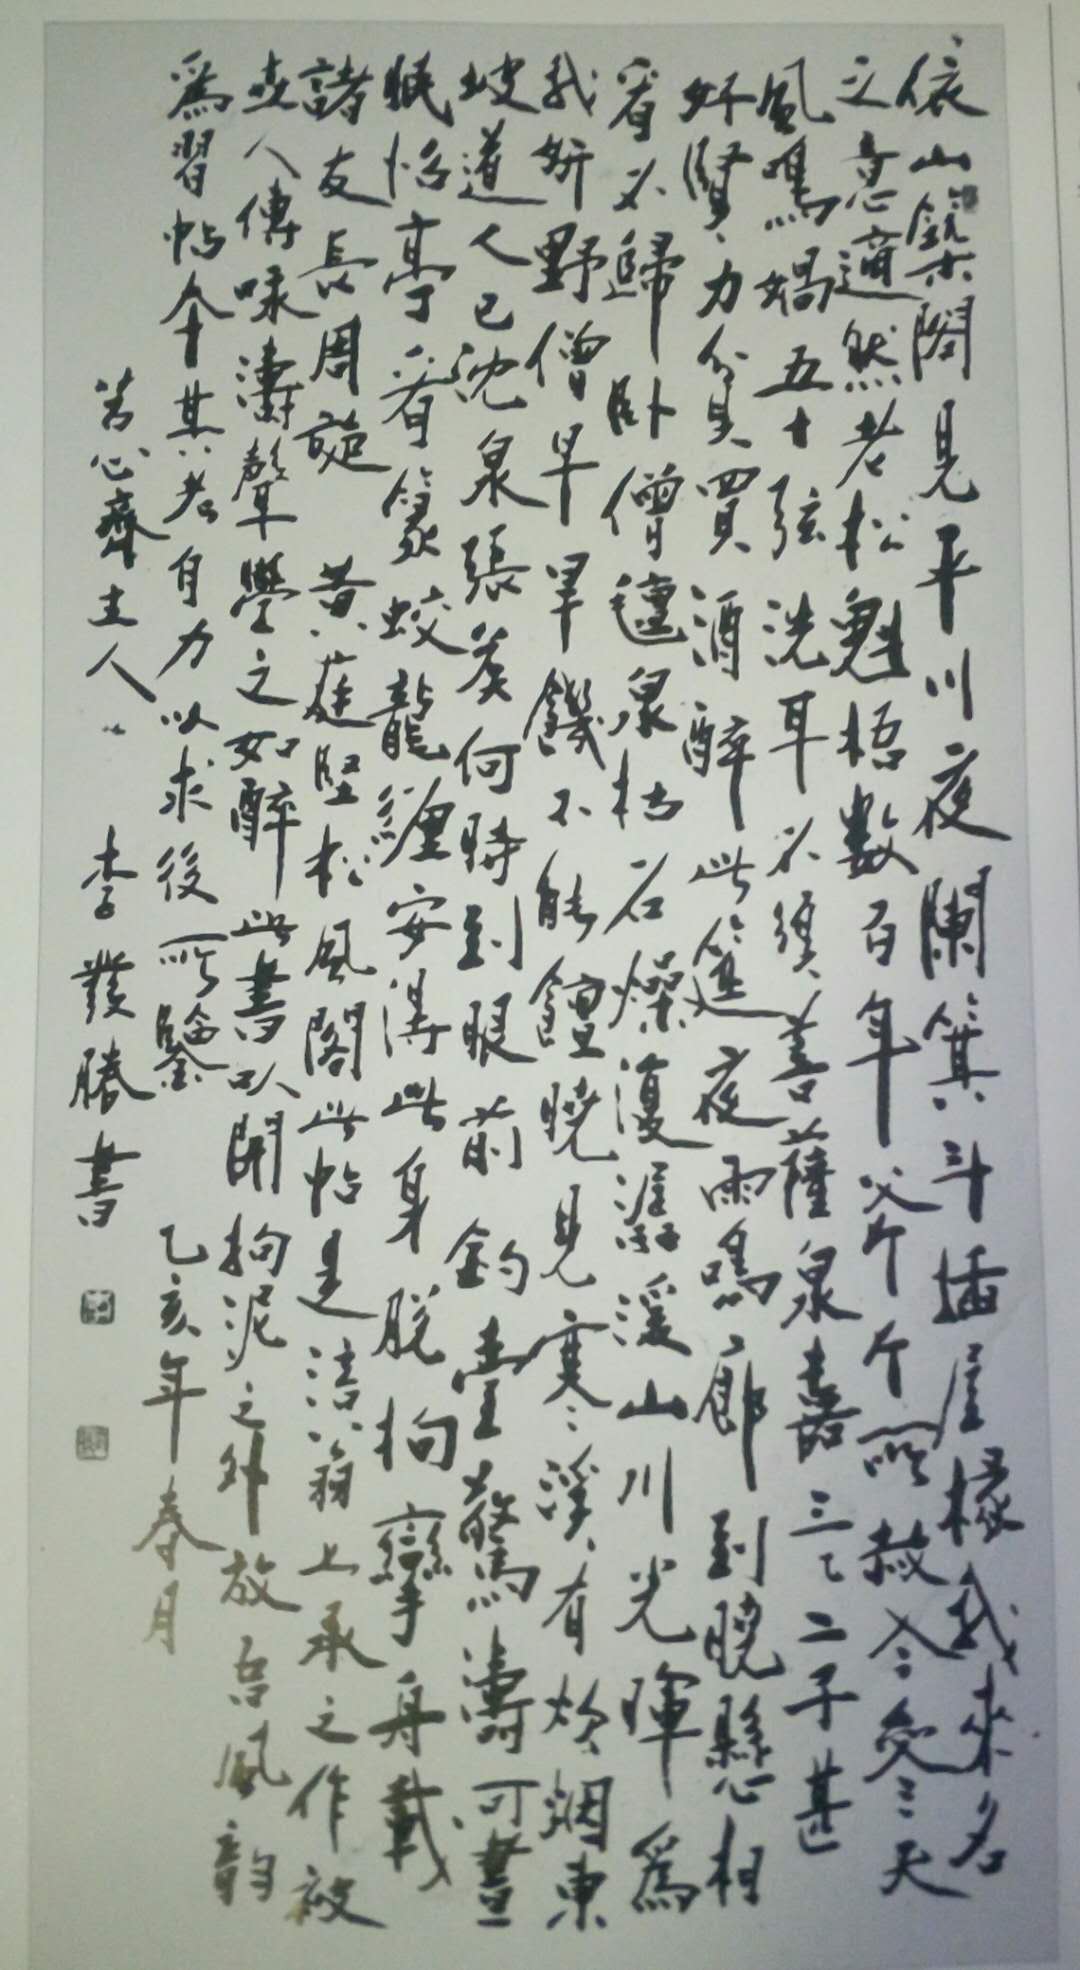 依山築閣見平川夜闌箕斗插屋椽我來名
之意適然老松魁梧數百年斧斤所赦今參天
風鳴媧五十弦洗耳不須菩薩泉嘉三二子甚
好賢力貧買酒醉此筵夜雨鳴廊到曉懸相
看不歸臥僧氈泉枯石燥復潺湲山川光暉為
我妍野僧早旱饑不能饘曉見寒溪有炊烟東
坡道人已沈泉張侯何時到眼前釣臺驚濤可晝
眠怡亭看篆蛟龍纏安得此身脫拘攣舟載
諸友長周旋 黃庭堅松風閣此帖是涪翁上承之作被
人傳味濤聲學之如醉此書以開拘泥之外放 風韵
為習帖本其 自力以求後所鑒 乙亥年春月
苦心齋主人 李發勝書